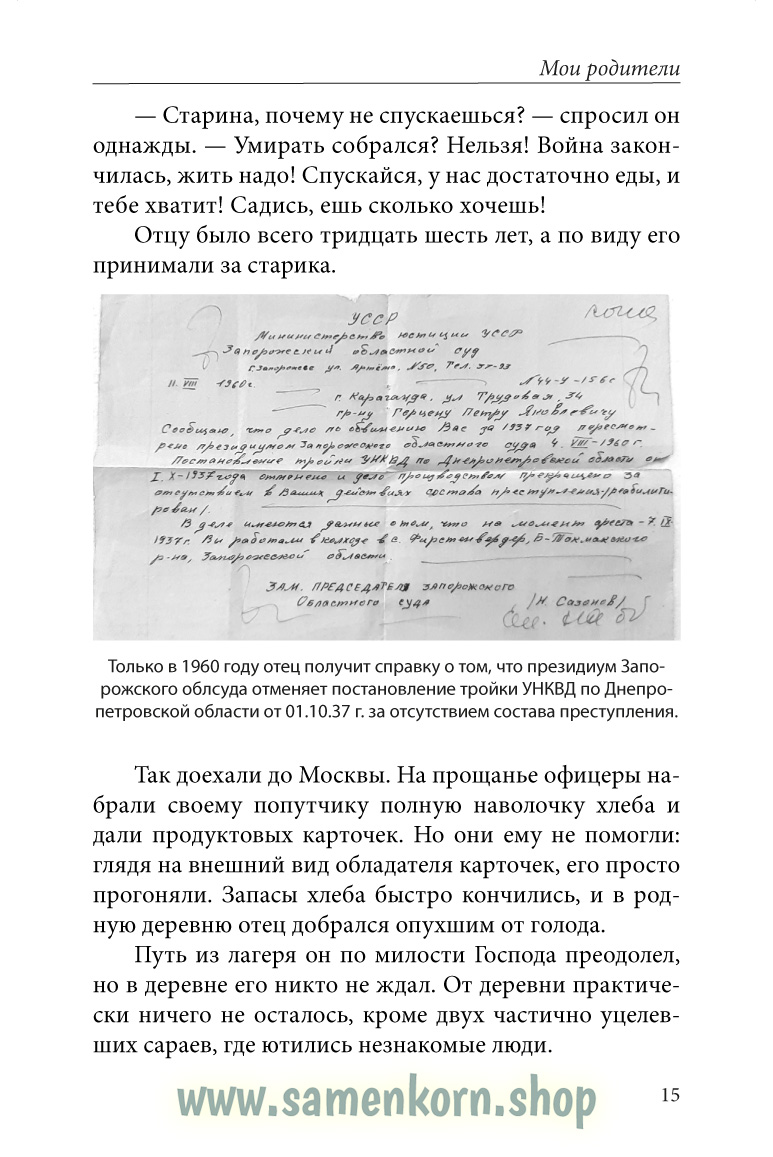 Мои родители
— Старина, почему не спускаешься? — спросил он
однажды. — Умирать собрался? Нельзя! Война закон-
чилась, жить надо! Спускайся, у нас достаточно еды, и
тебе хватит! Садись, ешь сколько хочешь!
Отцу было всего тридцать шесть лет, а по виду его
принимали за старика.
копия
УССР
Министерство юстиции УССР
Запорожский областной суд
г. Запорожье ул. Артёма, №50, Тел. 37-93
11. VIII 1960г. №44-У-156с
г. Караганда, ул Трудовая, 34
гр-ну Герцену Петру Яковлевичу
Сообщаю, что дело по обвинению Вас за 1937 год пересмот-
рено президиумом Запорожского областного суда 4. VIII-1960г.
Постановление тройки УНКВД по Днепропетровской области от
1.X-1937 года отменено и дело производством прекращено за
отсутствием в Ваших действиях состава преступления /реабилити-
рован/.
В деле имеются данные о том, что на момент ареста - 7. IX
1937г. Вы работали в колхозе в с. Фирстенвердер, Б-Токмакского
р-на, Запорожской области.
ЗАМ. ПРЕДСЕДАТЕЛЯ ЗАПОРОЖСКОГО
Областного суда /Н. Сазонов/
Только в 1960 году отец получит справку о том, что президиум Запо-
рожского облсуда отменяет постановление тройки УНКВД по Днепро-
петровской области от 01.10.37 г. за отсутствием состава преступления.
Так доехали до Москвы. На прощанье офицеры на-
брали своему попутчику полную наволочку хлеба и
дали продуктовых карточек. Но они ему не помогли:
глядя на внешний вид обладателя карточек, его просто
прогоняли. Запасы хлеба быстро кончились, и в род-
ную деревню отец добрался опухшим от голода.
Путь из лагеря он по милости Господа преодолел,
но в деревне его никто не ждал. От деревни практиче-
ски ничего не осталось, кроме двух частично уцелев-
ших сараев, где ютились незнакомые люди.
www.samenkorn.shop
15